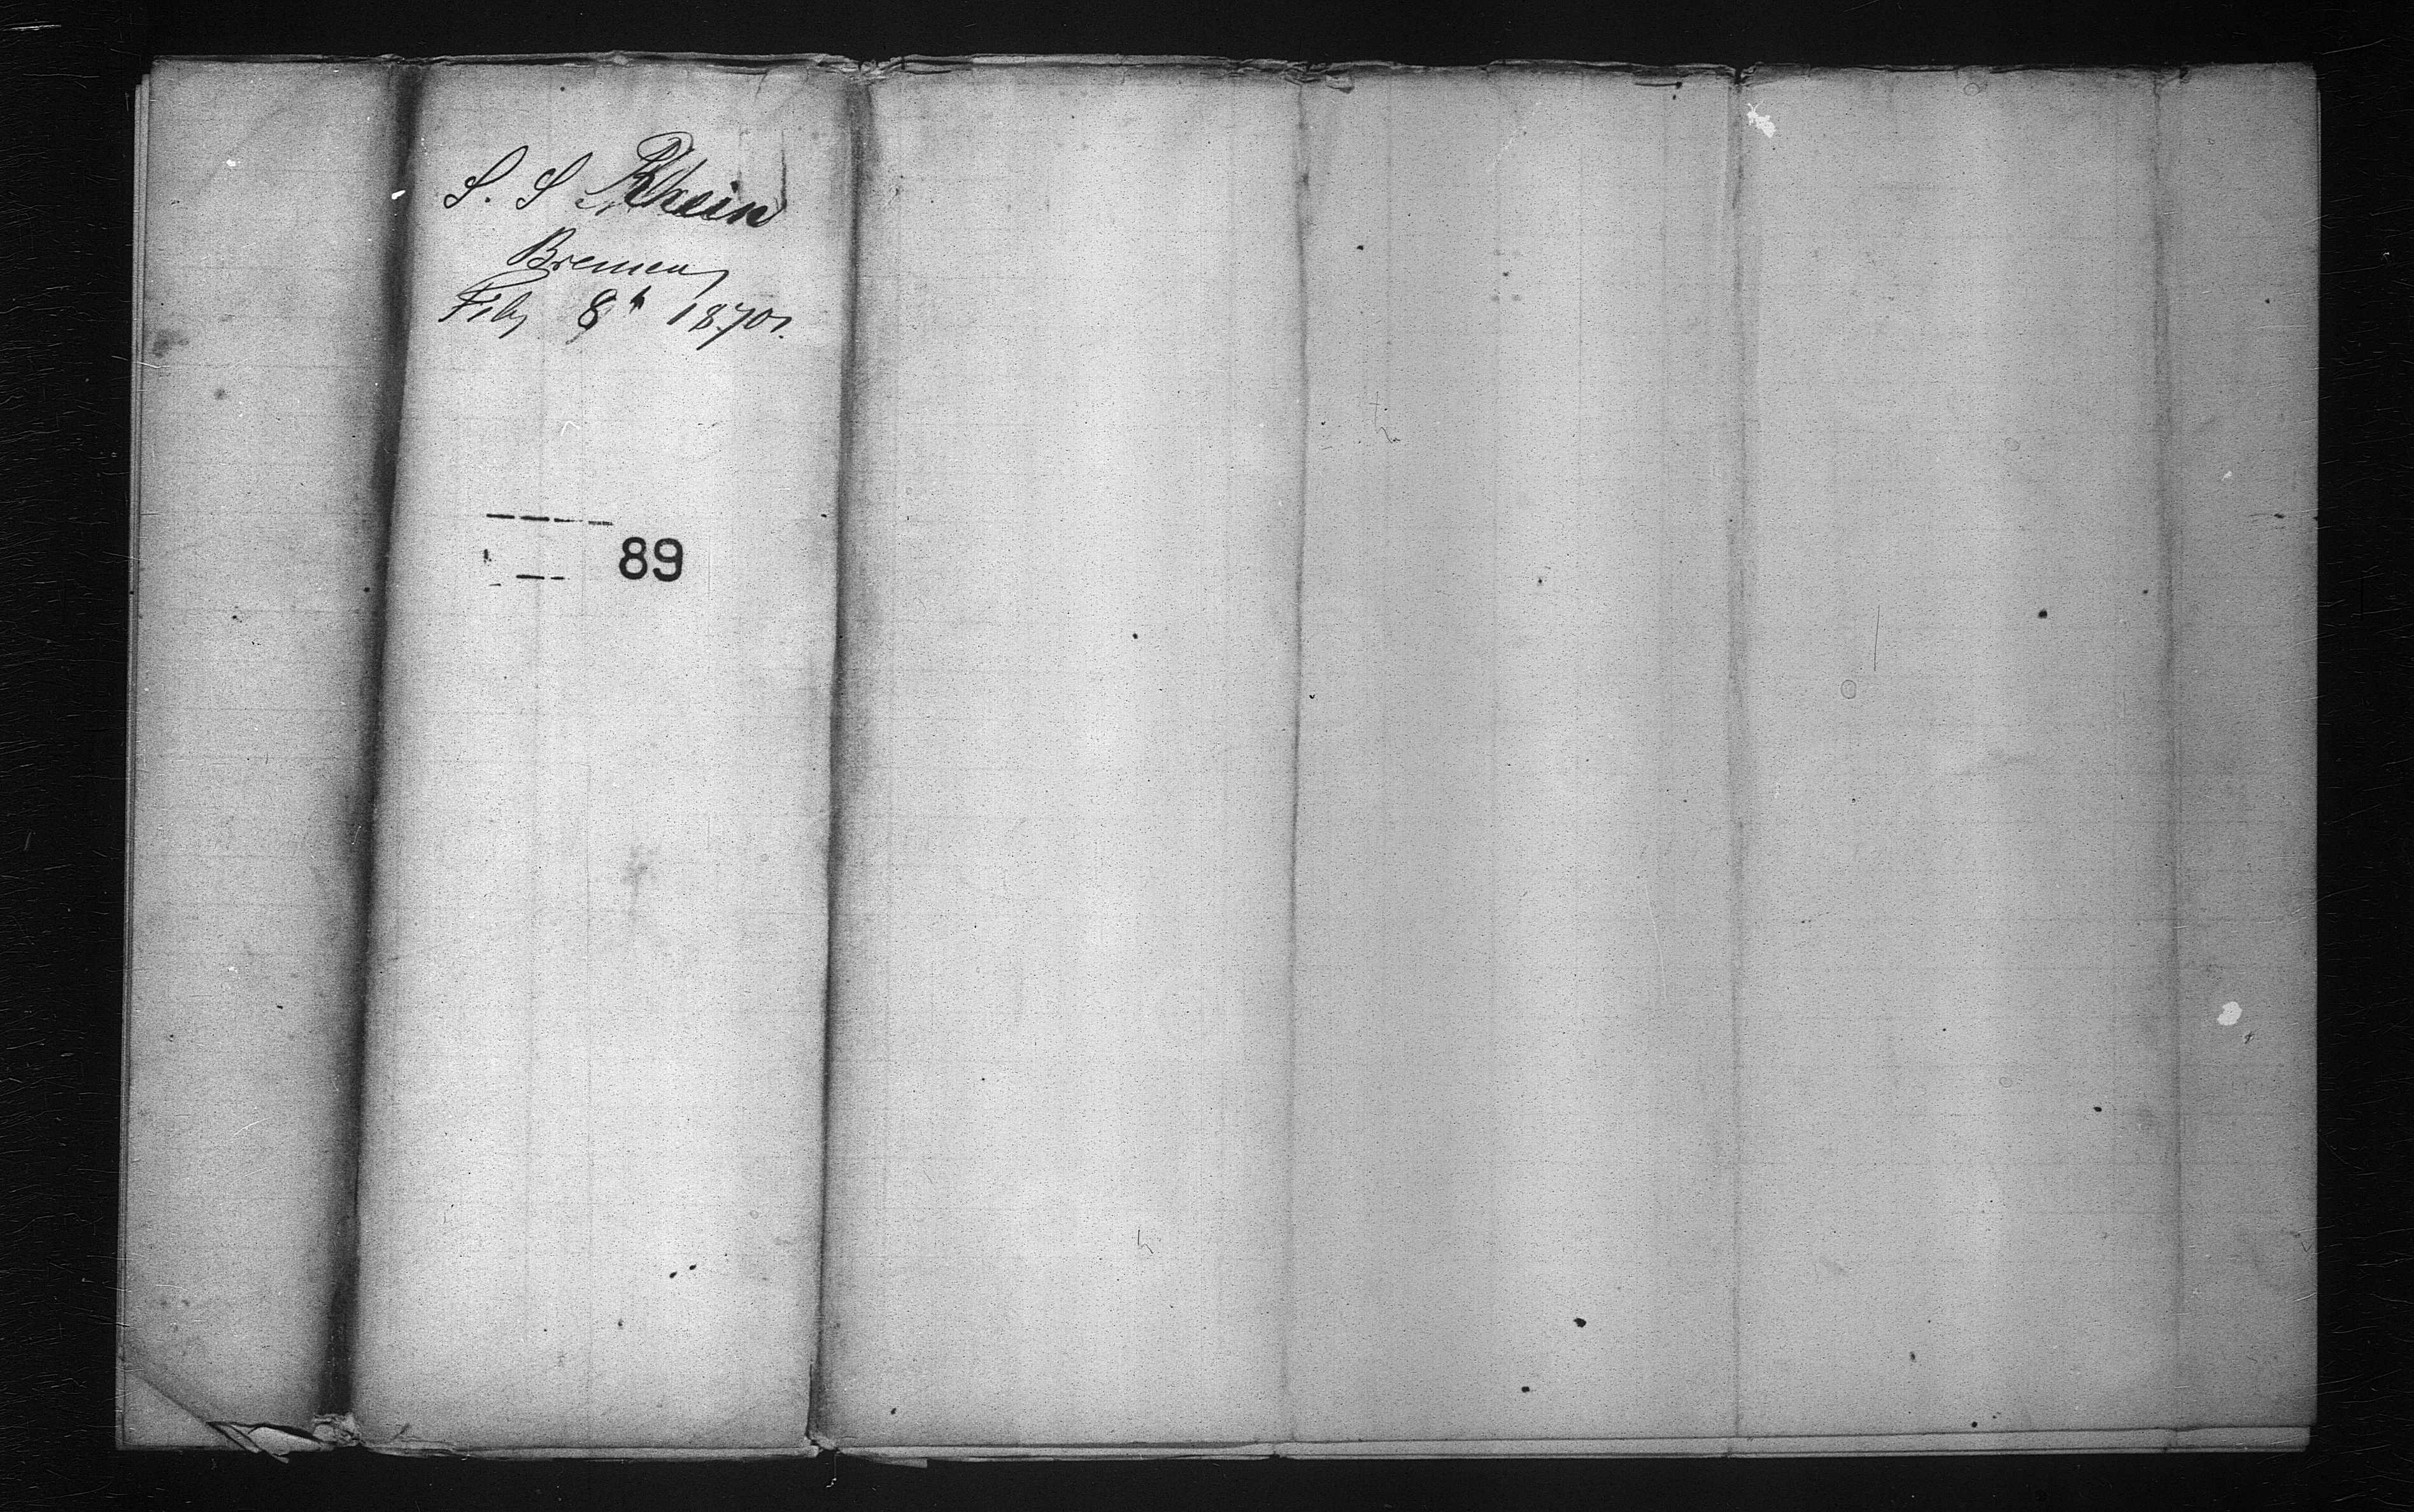 S. S Rhein
Bremen
Feby 8th 1870.
89